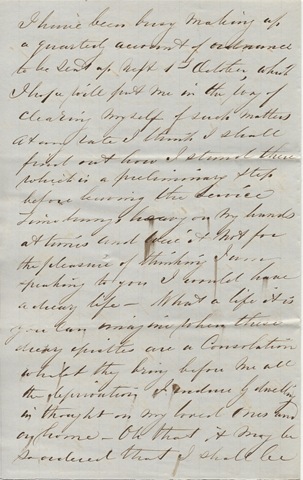 I have been busy making up
a quarterly account of ordnance
to be sent up Sept 1st October, which
I hope will put me in the way of
clearing myself of such matters
At any rate I think I shall
find out how I stand there
which is a preliminary step
before leaving the Service
Time hangs heavy on my hands
at times and were it not for
the pleasure of thinking I am
speaking to you I would have
a dreary life - What a life it is
you can imagine when these
dreary epistles are a Consolation
whilst they bring before me all
the deprivations I endure by dwelling
in thought on my loved Ones and
my home - Oh that it may be
so ordered that I shall be